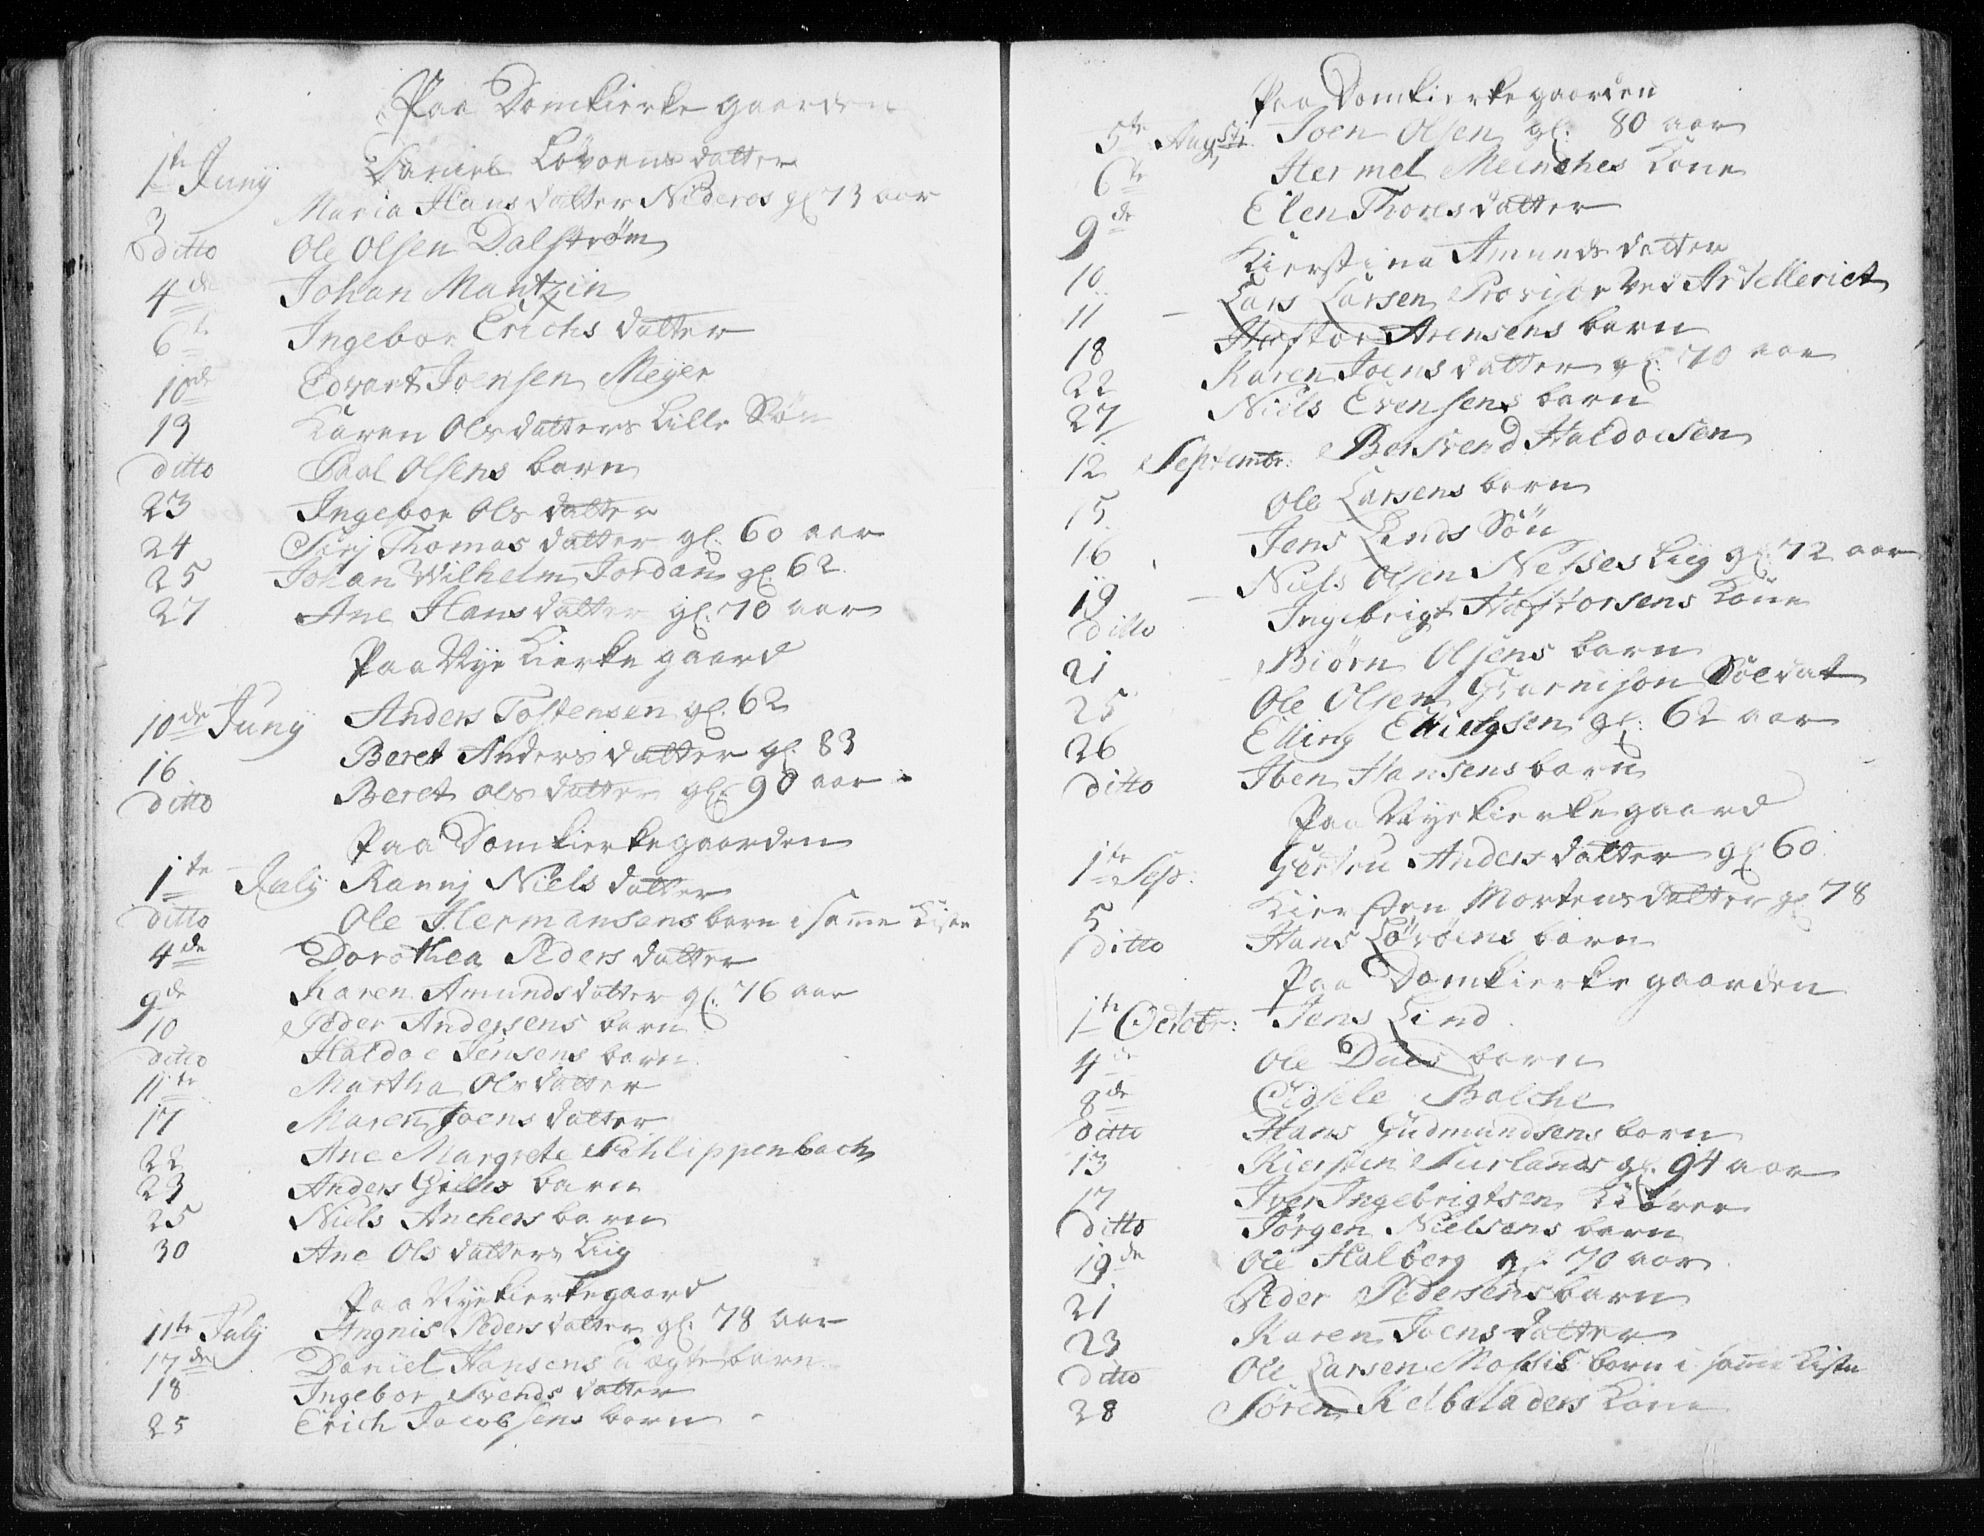 Paa Domkierke gaarden
1te Juny Daniel Lövoens datter
3 Maria Hans datter Nideros gl 73 aar
ditto Ole Olsen Dalström
4de Johan Mantzin
6te Ingebor Erichs datter
10de Edvart Joensen Meyer
19 Karen Ols datters Lille Sön
ditto Paal Olsens barn
23 Ingebor Ols datter
24 Sirj Thomas datter gl. 60 aar
25 Johan Wilhelm Jordan gl. 62
27 Ane Hans datter gl. 70 aar
Paa Nye Kierke gaard
10de Juny Anders Tostensen gl. 62
16 Beret Anders datter gl. 83
ditto Beret Ols datter gl. 90 aar
Paa Domkierkegaarden
1te July Rannj Niels datter
ditto Ole Hermansens barn i same Kiste
4de Dorothea Peders datter
9de Karen Amunds datter gl. 76 aar
10 Peder Andersens barn
ditto Haldoe Jensens barn
11te Martha Ols datter
17 Maren Joens datter
22 Ane Margrete Schlippenbach
23 Anders Gilles barn
25 Niels Anchers barn
30 Ane Ols datters Liig
Paa Nyekierkegaard
11te July Angnis Peders datter gl. 78 aar
17de Daniel Hansens uægte barn
18 Ingebor Svends datter
25 Erich Jacobsens barn
Paa Domkierkegaarden
5te Augsti Joen Olsen gl. 80 aar
6te Hermel Meinches Kone
9de Elen Thores datter
10 Kierstina Amunds datter
11 Lars Larsen Provisor ved Artelleriet
18 Hafstor Arensens barn
22 Karen Joens datter gl. 70 aar
27 Niels Evensens barn
12 Septembr. Bersvend Haldoesen
15 Ole Larsens barn
16 Jens Linds Sön
19 Niels Olsen Nesses Liig gl. 72 aar
ditto Ingebrigt Hafstorsens Kone
21 Biörn Olsens barn
25 Ole Olsen Guarnison Soldat
26 Elling Ellingsen gl. 62 aar
ditto Iben Hansens barn
Paa Nyekierkegaard
1te Sep. Gertru Anders datter gl 60
5 Kiersten Mortens datter gl 78
ditto Hans Lövöens barn
Paa Domkierke gaarden
1te Octobr: Jens Lind
4de Ole Dues barn
8de Cidsele Balche
ditto Hans Gudmundsens barn
13 Kiersten Surlands gl. 94 aar
17 Iver Ingebrigtsen Kiörer
ditto Jörgen Nielsens barn
19de Ole Halberg gl. 70 aar
21 Peder Pedersens barn
23 Karen Joens datter
ditto Ole Larsen barn i same Kiste
28 Sören Kelbeladers Kone